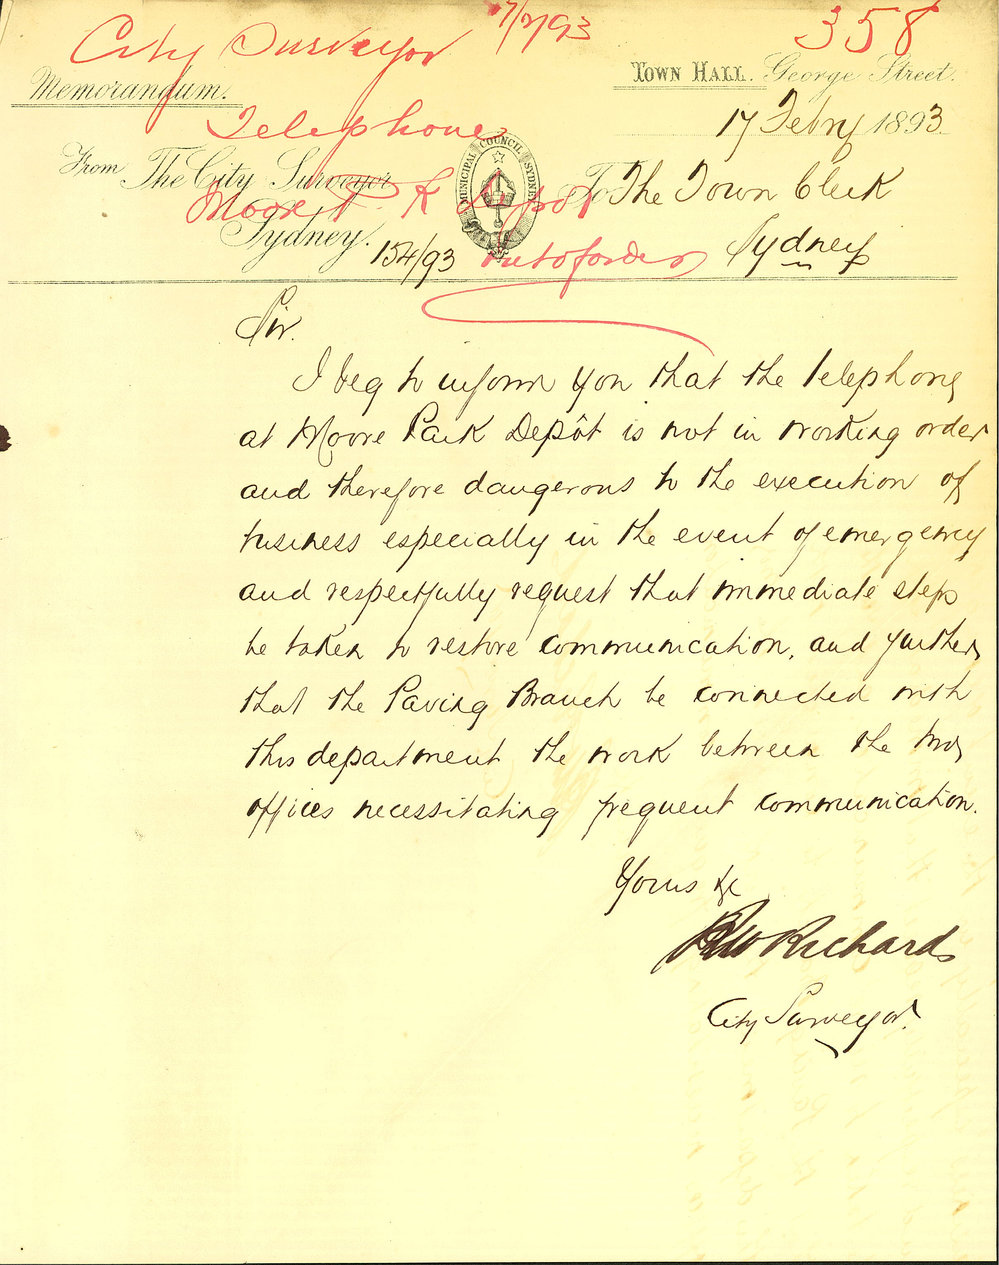 City Surveyor 17/2/93 358
Memorandum.
Town Hall. George Street.
Telephone
17 Febry 1893
From The City Surveyor
Sydney.
MUNICIPAL COUNCIL SYDNEY
To The Town Clerk
Sydney
Moore P K Depot
154/93 out of order
Sir.
I beg to inform you that the telephone
at Moore Park Depôt is not in working order
and therefore dangerous to the execution of
business especially in the event of emergency
and respectfully request that immediate steps
be taken to restore communication, and further
that the Paving Branch be connected with
this department the work between the two
offices necessitating frequent communication.
Yours &c
RW Richards
City Surveyor.